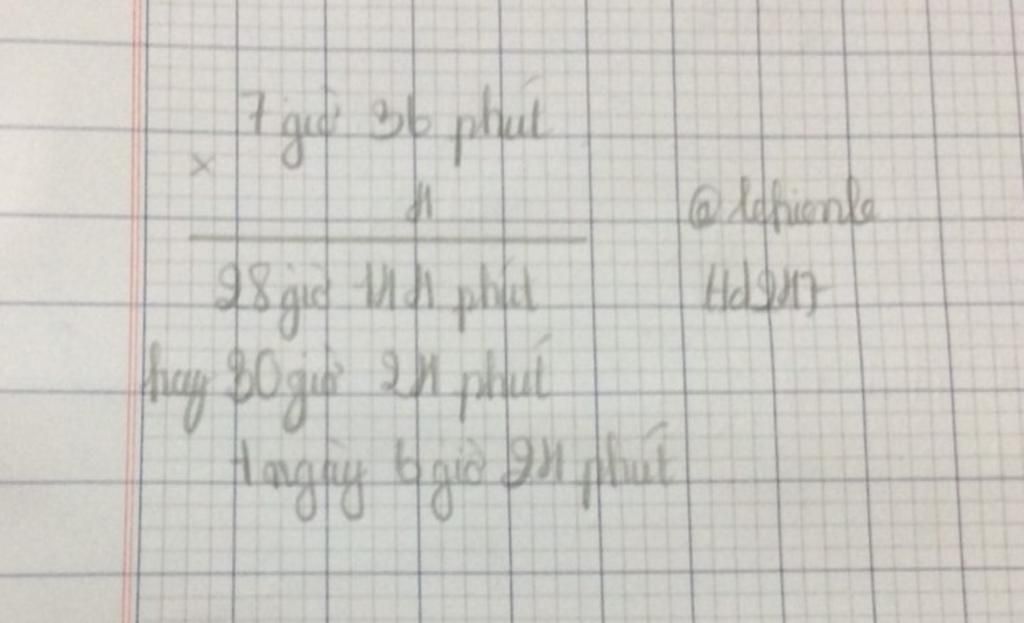 7 giờ 36 phút
×
4
@lehienle
28 giờ 144 phút
Hd247
hay 30 giờ 24 phút
1 ngày 6 giờ 24 phút